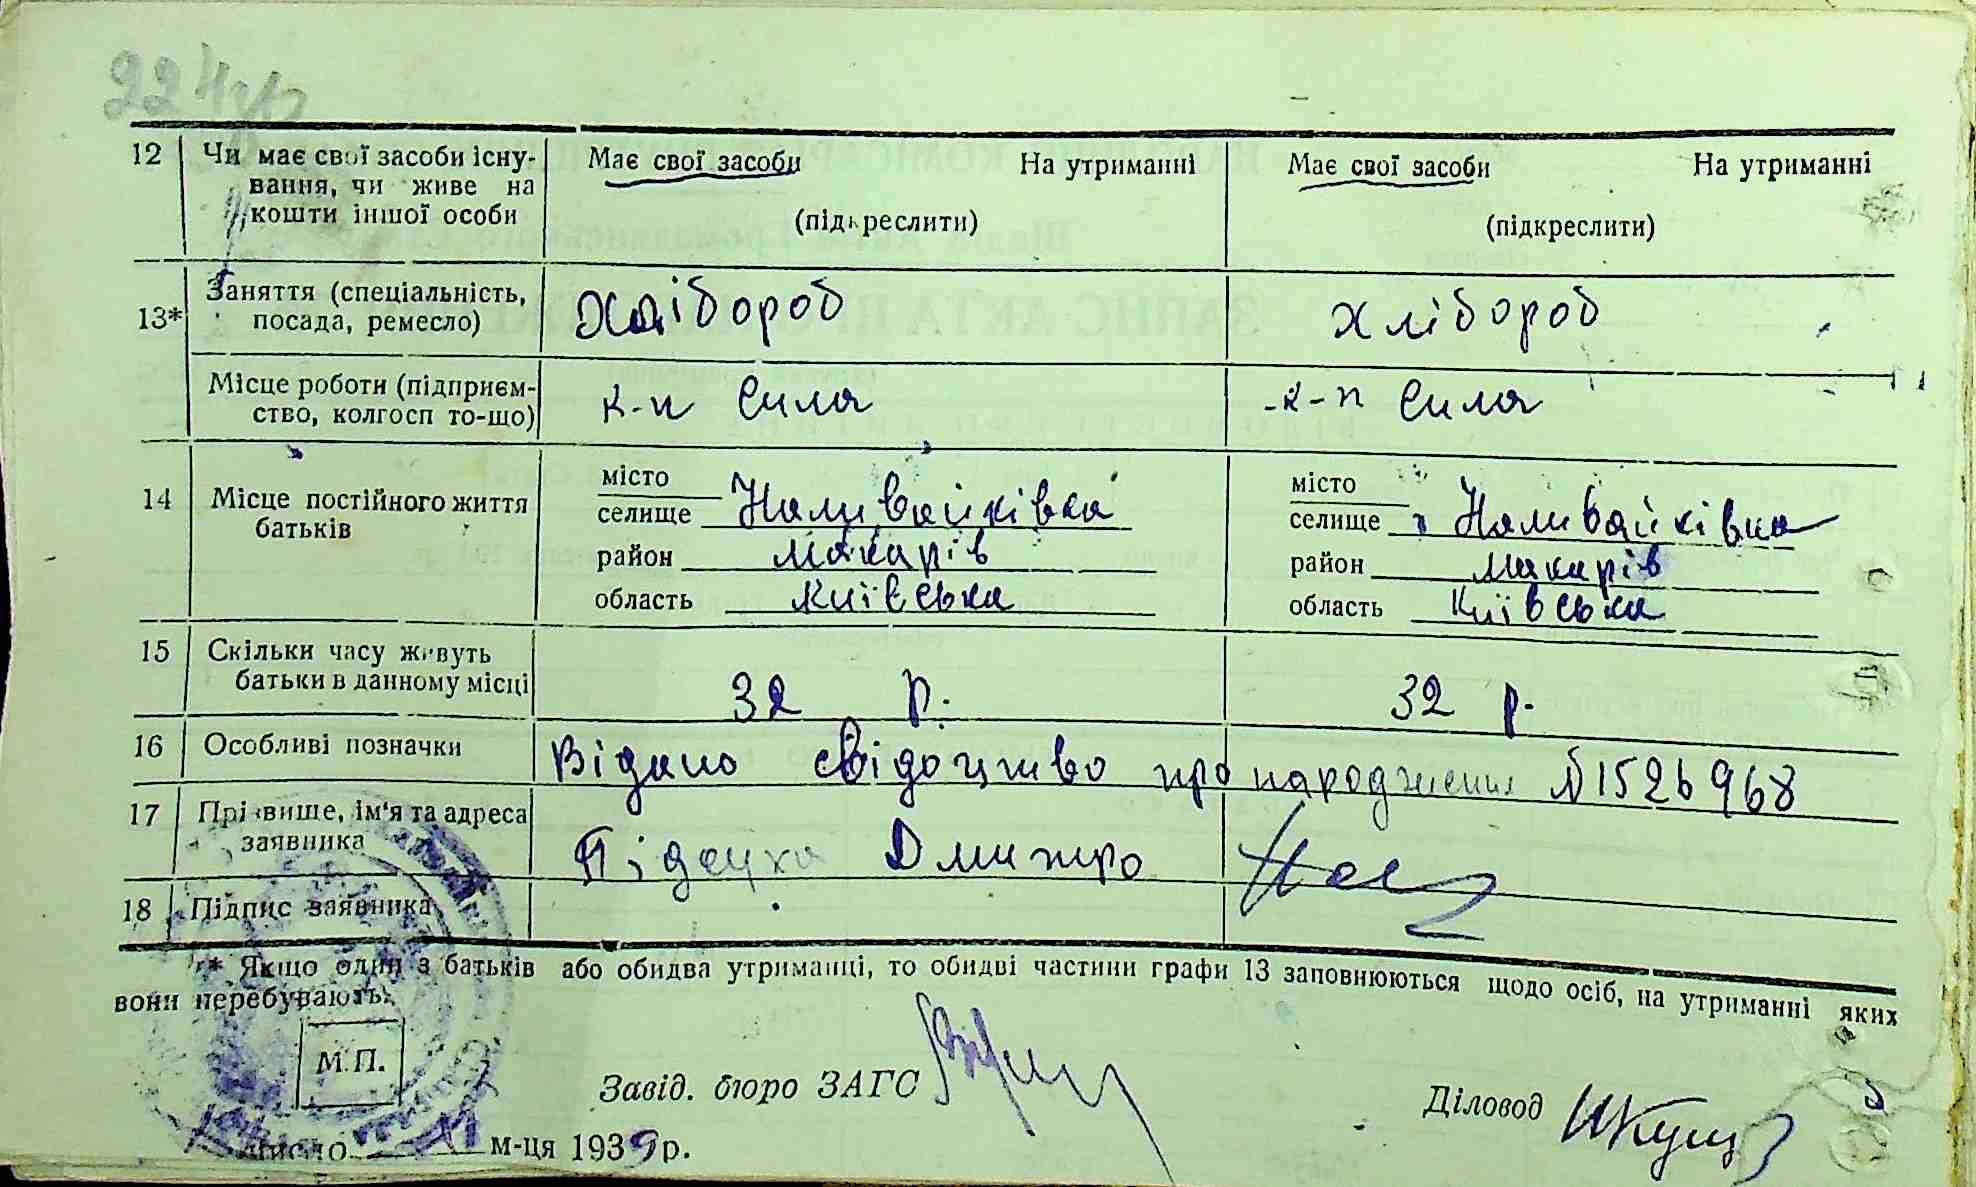 12 Чи має свої засоби існу- Має свої засоби На утриманні Має свої засоби На утриманні
вання, чи живе на
кошти іншої особи (підкреслити) (підкреслити)
13* Заняття (спеціальність, Хлібороб хлібороб
посада, ремесло)
Місце роботи (підприєм- к-п Сила к-п Сила
ство, колгосп то-що)
14 Місце постійного життя місто місто
батьків селище Наливайківка селище Наливайківка
район Макарів район Макарів
область Київська область Київська
15 Скільки часу живуть 32 р. 32 р.
батьки в данному місці
16 Особливі позначки Видано свідоцтво про народження №1526968
17 Прізвище, ім'я та адреса
заявника Дмитро
18 Підпис заявника
* Якщо один з батьків або обидва утриманці, то обидві частини графи 13 заповнюються щодо осіб, на утриманні яких
вони перебувають.
М.П.
Завід. бюро ЗАГС Діловод
число м-ця 1939 р.